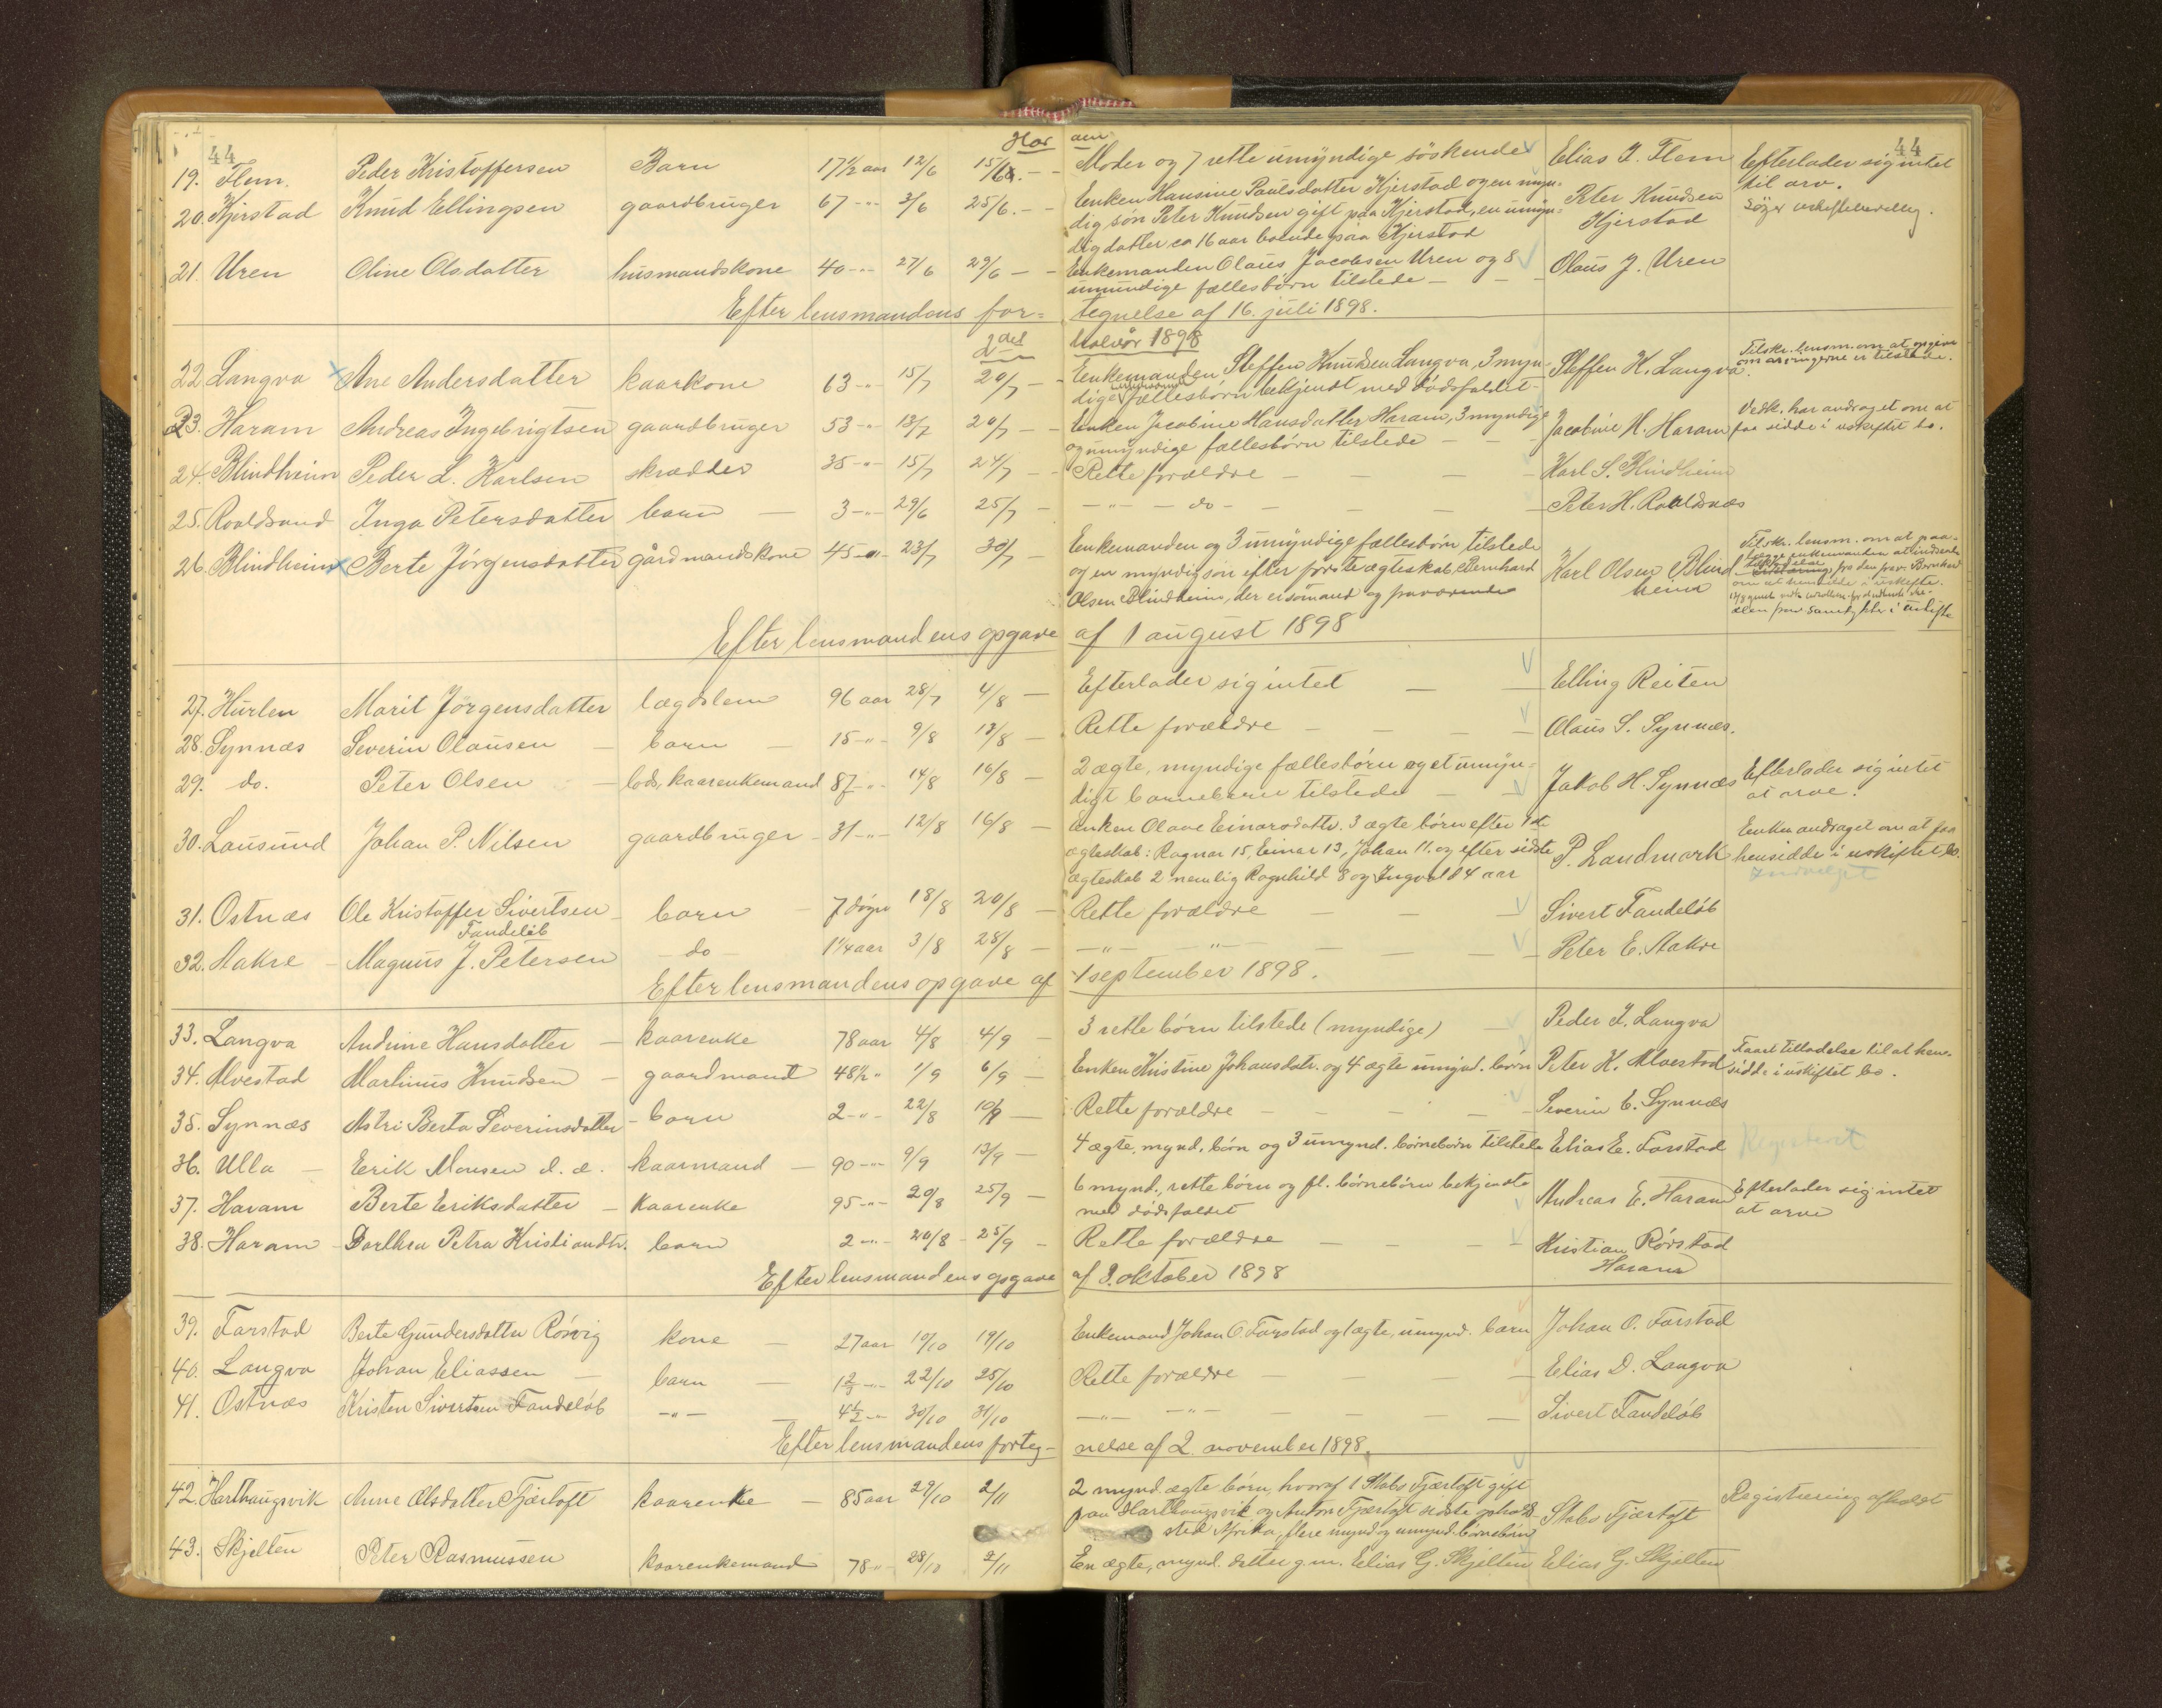 44 Har am 44
19. Flem. Peder Kristoffersen Barn 17 1/2 aar 12/6 15/6. - - Moder og 7 rette umyndige söskende Elias J. Flem Efterlader sig intet
til arv.
20. Kjerstad Knud Ellingsen gaardbruger 67 -"- 3/6 25/6. - - Enken Hansine Paulsdatter Kjerstad og en myn-
dig søn Peter Knudsen gift paa Kjerstad, en umyn- Peter Knudsen Søger
dig datter ca 16 aar boende paa Kjerstad Kjerstad
21. Uren Oline Olsdatter husmandskone 40 -"- 27/6 29/6 - - Enkemanden Olaus Jacobsen Uren og 8 Olaus J. Uren
umundige fællesbørn tilstede -
Efter lensmandens for= tegnelse af 16. juli 1898.
2det halvår 1898
22. Langva Ane Andersdatter kaarkone 63 -"- 15/7 20/7 - Enkemanden Steffen Knudsen Langva, 3 myn- Steffen K. Langva. Tilskr. lensm. om at opgive
om arvingerne er tilstede.
dige fællesbørn bekjendt med dødsfaldet -
23. Haram Andreas Ingebrigtsen gaardbruger 53 -"- 13/7 20/7 - - Enken Jacobine Hansdatter Haram, 3 myndige Jacobine H. Haram Vedk. har andraget om at
og umyndige fællesbørn tilstede - - faa sidde i uskiftet bo.
24. Blindheim Peder L. Karlsen skrædder 35 -"- 15/7 24/7 - - Rette forældre - - - Karl S. Blindheim
25. Roaldsund Inga Petersdatter barn - 3 -"- 29/6 25/7 - -"- - do - - - - Peter H. Roaldsnæs
26. Blindheim Berte Jörgensdatter gårdmandskone 45 -"- 23/7 30/7 - Enkemanden og 3 umyndige fællesbörn tilstede
og en myndig søn efter første ægteskab, Bernhard Karl Olsen Blind
heim
Olsen Blindheim, der er sømand og fraværende
Tilskr. lensm. om at paa-
lægge enkemanden at indsende
fra den frav. Bernhard
om at hensidde i uskifte.
Efter lensmandens opgave af 1 august 1898
27. Hurlen Marit Jörgensdatter lægdslem 96 aar 28/7 4/8 - Efterlader sig intet - - Elling Reiten
28. Synnæs Severin Olausen - barn - 15 -"- 9/8 13/8 - Rette forældre - - - Olaus S. Synnæs.
29. do. Peter Olsen - lods, kaarenkemand 87 -"- 14/8 16/8 - 2 ægte, myndige fællesbörn og et umyn-
digt barnebarn tilstede - - Jakob H. Synnæs Efterlader sig intet
at arve.
30. Lausund Johan P. Nilsen gaardbruger - 31 -"- 12/8 16/8 - Enken Olave Einarsdattr. 3 ægte børn efter 1ste
ægteskab: Ragnar 15, Einar 13, Johan 11. og efter sidste P. Landmark Enken andraget om at faa
hensidde i uskiftet bo.
ægteskab 2 nemlig Ragnhild 8 og Ingvald 4 aar Indvilget
31. Ostnæs Ole Kristoffer Sivertsen - barn - 7 døgn 18/8 20/8 - Rette forældre - - - Sivert Fandelöb
Fandelöb
32. Aakre - Magnus J. Petersen - do - 1 1/4 aar 3/8 28/8 - -"- -"- - - - Peter E. Aakre
Efter lensmandens opgave af 1 september 1898.
33. Langva Andrine Hansdatter - kaarenke 78 aar 4/8 4/9 - 3 rette börn tilstede (myndige) - Peder J. Langva
34. Alvestad Martinus Knudsen - gaardmand 48 1/2 " 1/9 6/9 - Enken Kristine Johansdatr. og 4 ægte umynd. börn Peter K. Alvestad Faaet tilladelse til at hen-
sidde i uskiftet bo.
35. Synnæs Astri Berta Severinsdatter - barn 2 -"- 22/8 10/9 - Rette forældre - - - - Severin E. Synnæs
36. Ulla - Erik Monsen d. æ. kaarmand - 90 -"- 9/9 13/9 - 4 ægte, mynd. börn og 3 umynd. börnebörn tilstede Elias E. Farstad Registrert
37. Haram Berte Eriksdatter - kaarenke 95 -"- 29/8 25/9 - 6 mynd., rette börn og fl. börnebörn bekjendte
med dødsfaldet Andreas E. Haram Efterlader sig intet
at arve
38. Haram - Dorthea Petra Kristiandtr. barn 2 -"- 20/8 - 25/9 - Rette forældre - - - Kristian Rörstad
Haram
Efter lensmandens opgave af 3. oktober 1898
39. Farstad Berte Gundersdatter Rösvig kone - 27 aar 10/10 19/10 Enkemand Johan O. Farstad og 1 ægte, umynd. barn Johan O. Farstad
40. Langva Johan Eliassen - barn - 1 2/3 -"- 22/10 25/10 Rette forældre - - - Elias D. Langva
41. Ostnæs Kristen Sivertsen Fandelöb -"- - 4 1/2 -"- 30/10 31/10 -"- -"- - - - Sivert Fandelöb
Efter lensmandens forteg- nelse af 2. november 1898.
42. Harthaugsvik Anne Olsdatter Fjærtoft kaarenke - 85 aar 29/10 2/11 2 mynd. ægte börn, hvoraf 1 Stabo Fjærtoft gift
paa Harthaugsvik og Anton Fjærtoft sidste opholds- Stabo Fjærtoft Registrering afholdt
sted Afrika, flere mynd og umynd. börnebörn
43. Skjelten Peter Rasmussen kaarenkemand 78 -"- 28/10 2/11 En ægte, mynd. datter g.m. Elias G. Skjelten Elias G. Skjelten